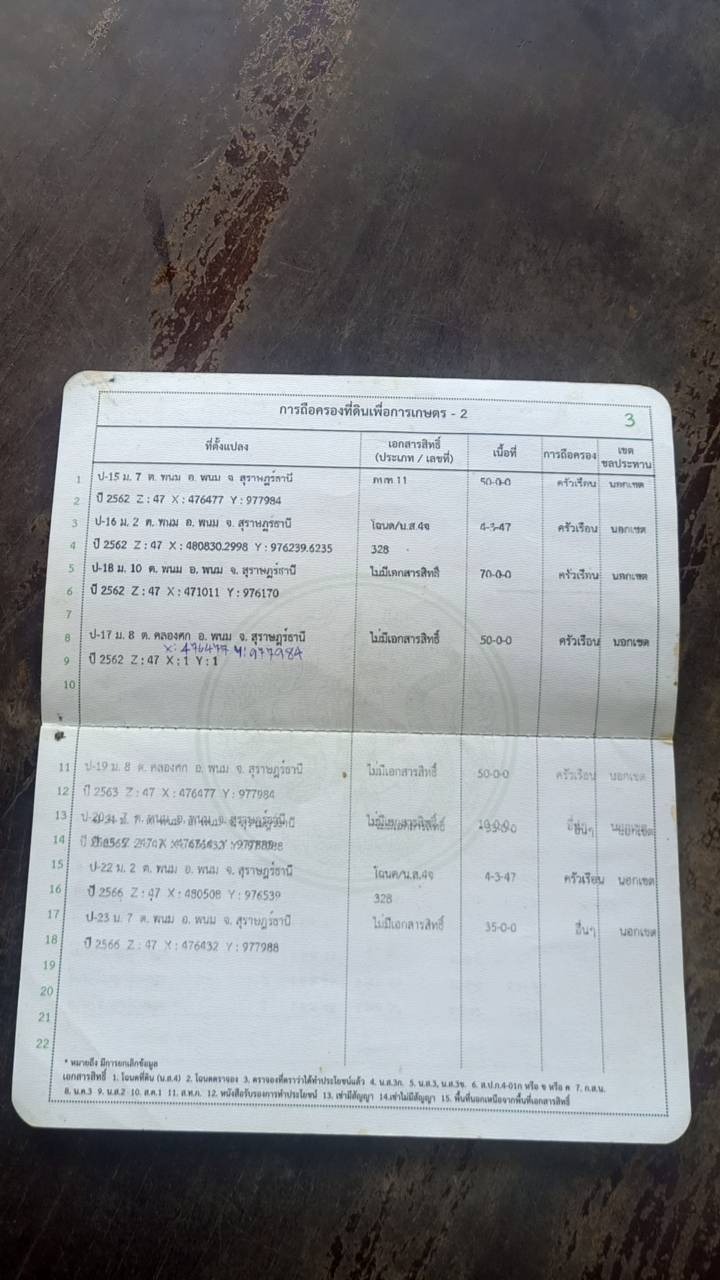 การถือครองที่ดินเพื่อการเกษตร - 2
3
ที่ตั้งแปลง เอกสารสิทธิ์ (ประเภท / เลขที่) เนื้อที่ การถือครอง เขตชลประทาน
1 ป-15 ม. 7 ต. พนม อ. พนม จ. สุราษฎร์ธานี ภทท 11 50-0-0 ครัวเรือน นอกเขต
2 ปี 2562 Z : 47 X : 476477 Y : 977984
3 ป-16 ม. 2 ต. พนม อ. พนม จ. สุราษฎร์ธานี โฉนด/น.ส.4จ 4-3-47 ครัวเรือน นอกเขต
4 ปี 2562 Z : 47 X : 480830.2998 Y : 976239.6235 328
5 ป-18 ม. 10 ต. พนม อ. พนม จ. สุราษฎร์ธานี ไม่มีเอกสารสิทธิ์ 70-0-0 ครัวเรือน นอกเขต
6 ปี 2562 Z : 47 X : 471011 Y : 976170
7
8 ป-17 ม. 8 ต. คลองศก อ. พนม จ. สุราษฎร์ธานี ไม่มีเอกสารสิทธิ์ 50-0-0 ครัวเรือน นอกเขต
X: 476477 Y: 977984
9 ปี 2562 Z : 47 X : 1 Y : 1
10
11 ป-19 ม. 8 ต. คลองศก อ. พนม จ. สุราษฎร์ธานี ไม่มีเอกสารสิทธิ์ 50-0-0 ครัวเรือน นอกเขต
12 ปี 2563 Z : 47 X : 476477 Y : 977984
13 ไม่มีเอกสารสิทธิ์ อื่นๆ นอกเขต
14
15 ป-22 ม. 2 ต. พนม อ. พนม จ. สุราษฎร์ธานี โฉนด/น.ส.4จ 4-3-47 ครัวเรือน นอกเขต
16 ปี 2566 Z : 47 X : 480508 Y : 976539 328
17 ป-23 ม. 7 ต. พนม อ. พนม จ. สุราษฎร์ธานี ไม่มีเอกสารสิทธิ์ 35-0-0 อื่นๆ นอกเขต
18 ปี 2566 Z : 47 X : 476432 Y : 977988
19
20
21
22
* หมายถึง มีการยกเลิกข้อมูล
เอกสารสิทธิ์ 1. โฉนดที่ดิน (น.ส.4) 2. โฉนดตราจอง 3. ตราจองที่ตราว่าได้ทำประโยชน์แล้ว 4. น.ส.3ก. 5. น.ส.3, น.ส.3ข. 6. ส.ป.ก.4-01ก หรือ ข หรือ ค 7. ก.ส.น.
8. น.ค.3 9. น.ส.2 10. ส.ค.1 11. ส.ท.ก. 12. หนังสือรับรองการทำประโยชน์ 13. เช่ามีสัญญา 14.เช่าไม่มีสัญญา 15. พื้นที่นอกเหนือจากพื้นที่เอกสารสิทธิ์